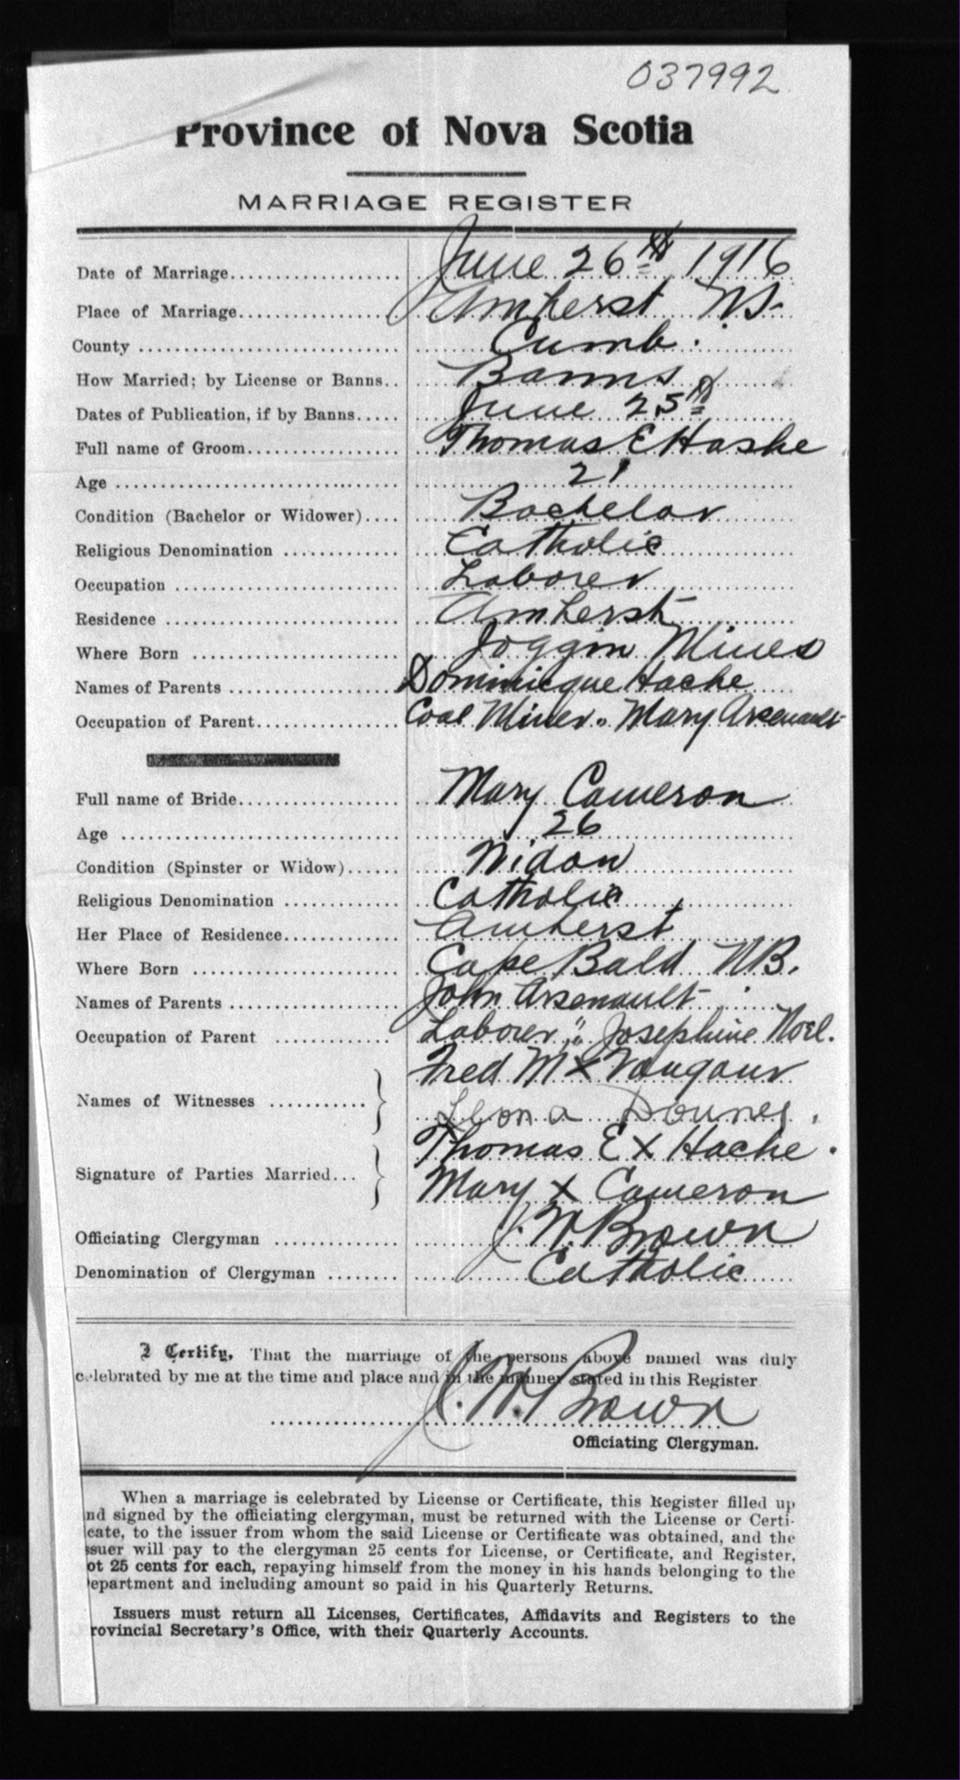 037992
Province of Nova Scotia
MARRIAGE REGISTER
Date of Marriage.................... June 26th 1916
Place of Marriage................... Amherst N.S.
County .............................. Cumb.
How Married; by License or Banns.. Banns
Dates of Publication, if by Banns..... June 25th
Full name of Groom.................. Thomas E Hashe
Age ................................. 21
Condition (Bachelor or Widower).... Bachelor
Religious Denomination ............. Catholic
Occupation .......................... Laborer
Residence ........................... Amherst
Where Born ........................ Joggin Mines
Names of Parents ................... Dominicque Hache
Occupation of Parent................ Coal Miner. Mary Arsenault
Full name of Bride.................. Mary Cameron
Age ................................ 26
Condition (Spinster or Widow)...... Widow
Religious Denomination ............. Catholic
Her Place of Residence............. Amherst
Where Born ........................ Cape Bald NB.
Names of Parents ................... John Arsenault
Occupation of Parent ............. Laborer " Josephine Noel.
Fred M X Vaugour
Names of Witnesses ........... Leona Douney.
Thomas E X Hache.
Signature of Parties Married... Mary X Cameron
Officiating Clergyman .............. J. W. Brown
Denomination of Clergyman ........ Catholic
I Certify, That the marriage of the persons above named was duly
celebrated by me at the time and place and in the manner stated in this Register
J. W. Brown
Officiating Clergyman.
When a marriage is celebrated by License or Certificate, this Register filled up
nd signed by the officiating clergyman, must be returned with the License or Certi-
icate, to the issuer from whom the said License or Certificate was obtained, and the
ssuer will pay to the clergyman 25 cents for License, or Certificate, and Register,
ot 25 cents for each, repaying himself from the money in his hands belonging to the
epartment and including amount so paid in his Quarterly Returns.
Issuers must return all Licenses, Certificates, Affidavits and Registers to the
rovincial Secretary's Office, with their Quarterly Accounts.